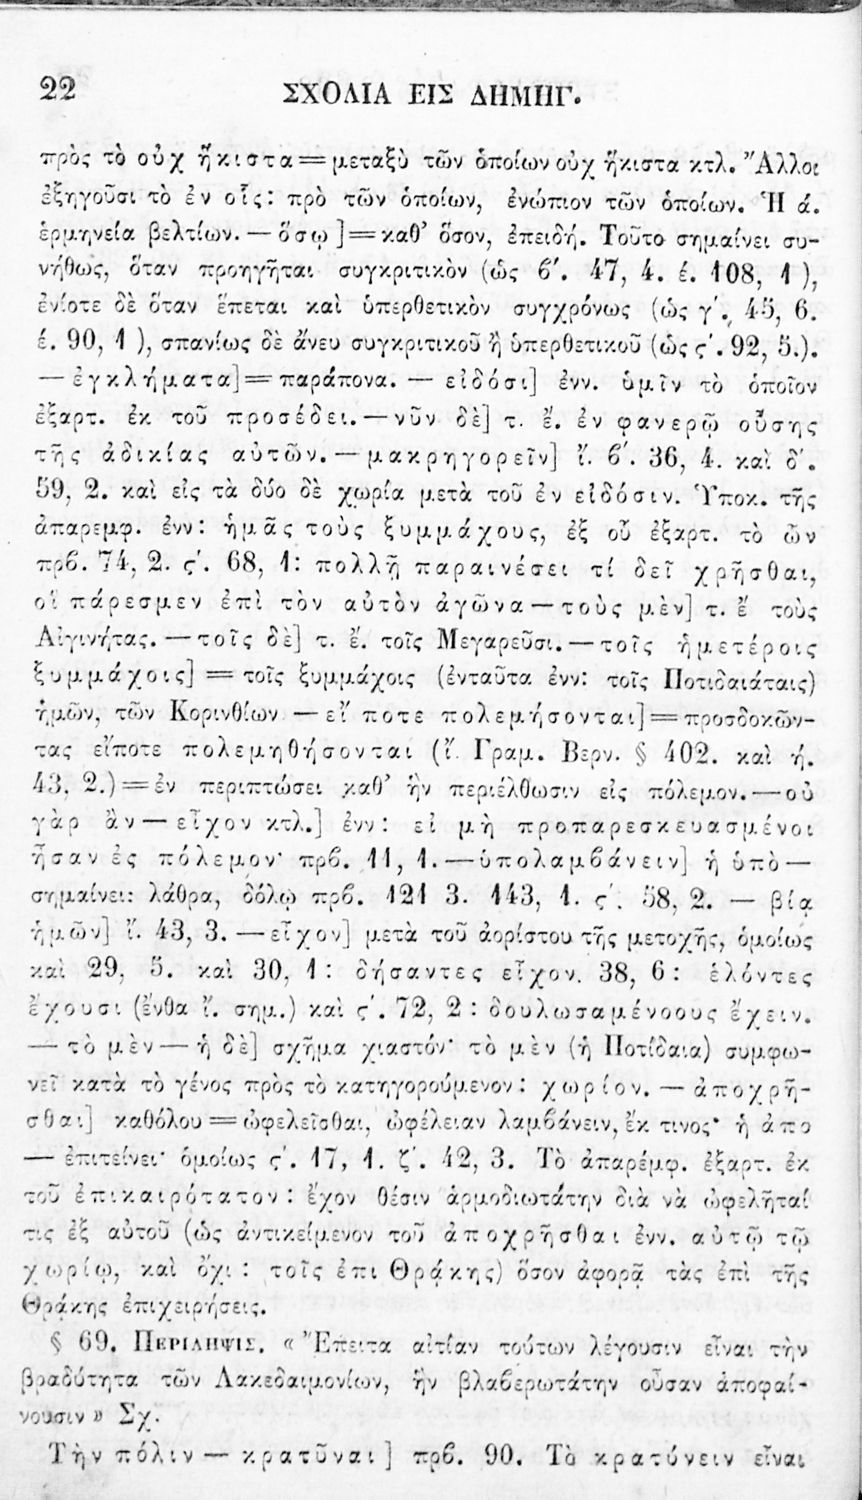 22
ΣΧΟΛΙΑ ΕΙΣ ΔΗΜΗΓ.
πρὸς τὸ οὐχ ἥκιστα = μεταξὺ τῶν ὁποίων οὐχ ἥκιστα κτλ. Ἄλλοι
ἐξηγοῦσι τὸ ἐν οἷς: πρὸ τῶν ὁποίων, ἐνώπιον τῶν ὁποίων. Ἡ ά.
ἑρμηνεία βελτίων. — ὅσῳ] = καθ’ ὅσον, ἐπειδή. Τοῦτο σημαίνει συ-
νήθως, ὅταν προηγῆται συγκριτικὸν (ὡς β´. 47, 4. έ. 108, 1),
ἐνίοτε δὲ ὅταν ἕπεται καὶ ὑπερθετικὸν συγχρόνως (ὡς γ´. 45, 6.
έ. 90, 1), σπανίως δὲ ἄνευ συγκριτικοῦ ἢ ὑπερθετικοῦ (ὡς ς´. 92, 5.).
— ἐγκλήματα] = παράπονα. — εἰδόσι] ἐνν. ὑμῖν τὸ ὁποῖον
ἐξαρτ. ἐκ τοῦ προσέδει. — νῦν δὲ] τ. ἔ. ἐν φανερῷ οὔσης
τῆς ἀδικίας αὐτῶν. — μακρηγορεῖν] ἴ. β´. 36, 4. καὶ δ´.
59, 2. καὶ εἰς τὰ δύο δὲ χωρία μετὰ τοῦ ἐν εἰδόσιν. Ὑποκ. τῆς
ἀπαρεμφ. ἐνν: ἡμᾶς τοὺς ξυμμάχους, ἐξ οὗ ἐξαρτ. τὸ ὧν
πρβ. 74, 2. ς´. 68, 1: πολλῇ παραινέσει τί δεῖ χρῆσθαι,
οἳ πάρεσμεν ἐπὶ τὸν αὐτὸν ἀγῶνα — τοὺς μὲν] τ. ἔ τοὺς
Αἰγινήτας. — τοῖς δὲ] τ. ἔ. τοῖς Μεγαρεῦσι. — τοῖς ἡμετέροις
ξυμμάχοις] = τοῖς ξυμμάχοις (ἐνταῦτα ἐνν: τοῖς Ποτιδαιάταις)
ἡμῶν, τῶν Κορινθίων — εἴ ποτε πολεμήσονται] = προσδοκῶν-
τας εἴποτε πολεμηθήσονται (ἴ. Γραμ. Βερν. § 402. καὶ ή.
43, 2.) = ἐν περιπτώσει καθ’ ἣν περιέλθωσιν εἰς πόλεμον. — οὐ
γὰρ ἂν — εἶχον κτλ.] ἐνν: εἰ μὴ προπαρεσκευασμένοι
ἦσαν ἐς πόλεμον· πρβ. 11, 1. — ὑπολαμβάνειν] ἡ ὑπὸ —
σημαίνει: λάθρα, δόλῳ πρβ. 121 3. 143, 1. ς´. 58, 2. — βίᾳ
ἡμῶν] ἴ. 43, 3. — εἶχον] μετὰ τοῦ ἀορίστου τῆς μετοχῆς, ὁμοίως
καὶ 29, 5. καὶ 30, 1: δήσαντες εἶχον. 38, 6: ἑλόντες
ἔχουσι (ἔνθα ἴ. σημ.) καὶ ς´. 72, 2: δουλωσαμένοους ἔχειν.
— τὸ μὲν — ἡ δὲ] σχῆμα χιαστόν· τὸ μὲν (ἡ Ποτίδαια) συμφω-
νεῖ κατὰ τὸ γένος πρὸς τὸ κατηγορούμενον: χωρίον. — ἀποχρῆ-
σθαι] καθόλου = ὠφελεῖσθαι, ὠφέλειαν λαμβάνειν, ἔκ τινος· ἡ ἀπο
— ἐπιτείνει· ὁμοίως ς´. 17, 1. ζ´. 42, 3. Τὸ ἀπαρέμφ. ἐξαρτ. ἐκ
τοῦ ἐπικαιρότατον: ἔχον θέσιν ἁρμοδιωτάτην διὰ νὰ ὠφελῆταί
τις ἐξ αὐτοῦ (ὡς ἀντικείμενον τοῦ ἀποχρῆσθαι ἐνν. αὐτῷ τῷ
χωρίῳ, καὶ ὄχι: τοῖς ἐπι Θρᾴκης) ὅσον ἀφορᾷ τὰς ἐπὶ τῆς
Θρᾴκης ἐπιχειρήσεις.
§ 69. ΠΕΡΙΛΗΨΙΣ. « Ἔπειτα αἰτίαν τούτων λέγουσιν εἶναι τὴν
βραδύτητα τῶν Λακεδαιμονίων, ἣν βλαβερωτάτην οὖσαν ἀποφαί-
νουσιν » Σχ.
Τὴν πόλιν — κρατῦναι] πρβ. 90. Τὸ κρατύνειν εἶναι